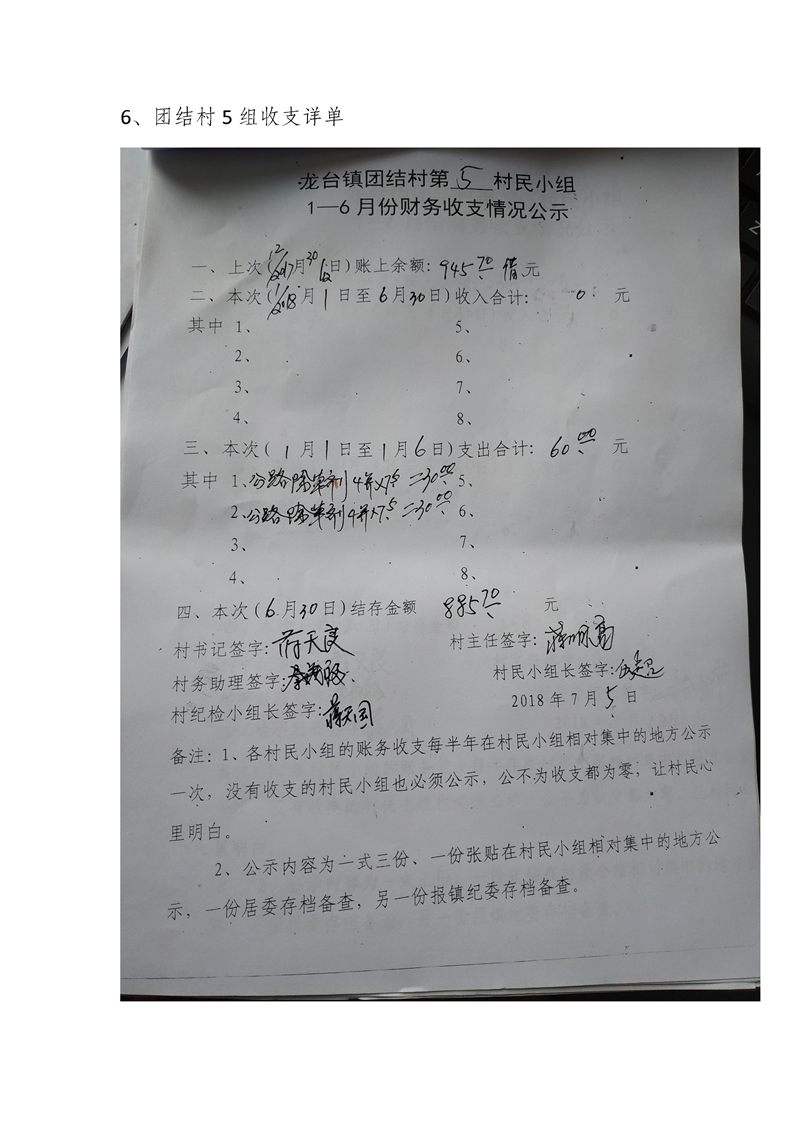 6、团结村 5 组收支详单
龙台镇团结村第 5 村民小组
1—6 月份财务收支情况公示
一、上次(2017 12月30日)账上余额: 945.70 借元
二、本次(2018 1月1日至6月30日)收入合计: 0 元
其中 1、 5、
2、 6、
3、 7、
4、 8、
三、本次( 1月1日至1月6日)支出合计: 60.00 元
其中 1、公路除草剂4并×7.5=30.00 5、
2、公路除草剂4并×7.5=30.00 6、
3、 7、
4、 8、
四、本次(6月30日)结存金额 885.70 元
村书记签字: 村主任签字:
村务助理签字: 村民小组长签字:
村纪检小组长签字: 2018年7月5日
备注:1、各村民小组的账务收支每半年在村民小组相对集中的地方公示
一次，没有收支的村民小组也必须公示，公不为收支都为零，让村民心
里明白。
2、公示内容为一式三份、一份张贴在村民小组相对集中的地方公
示，一份居委存档备查，另一份报镇纪委存档备查。